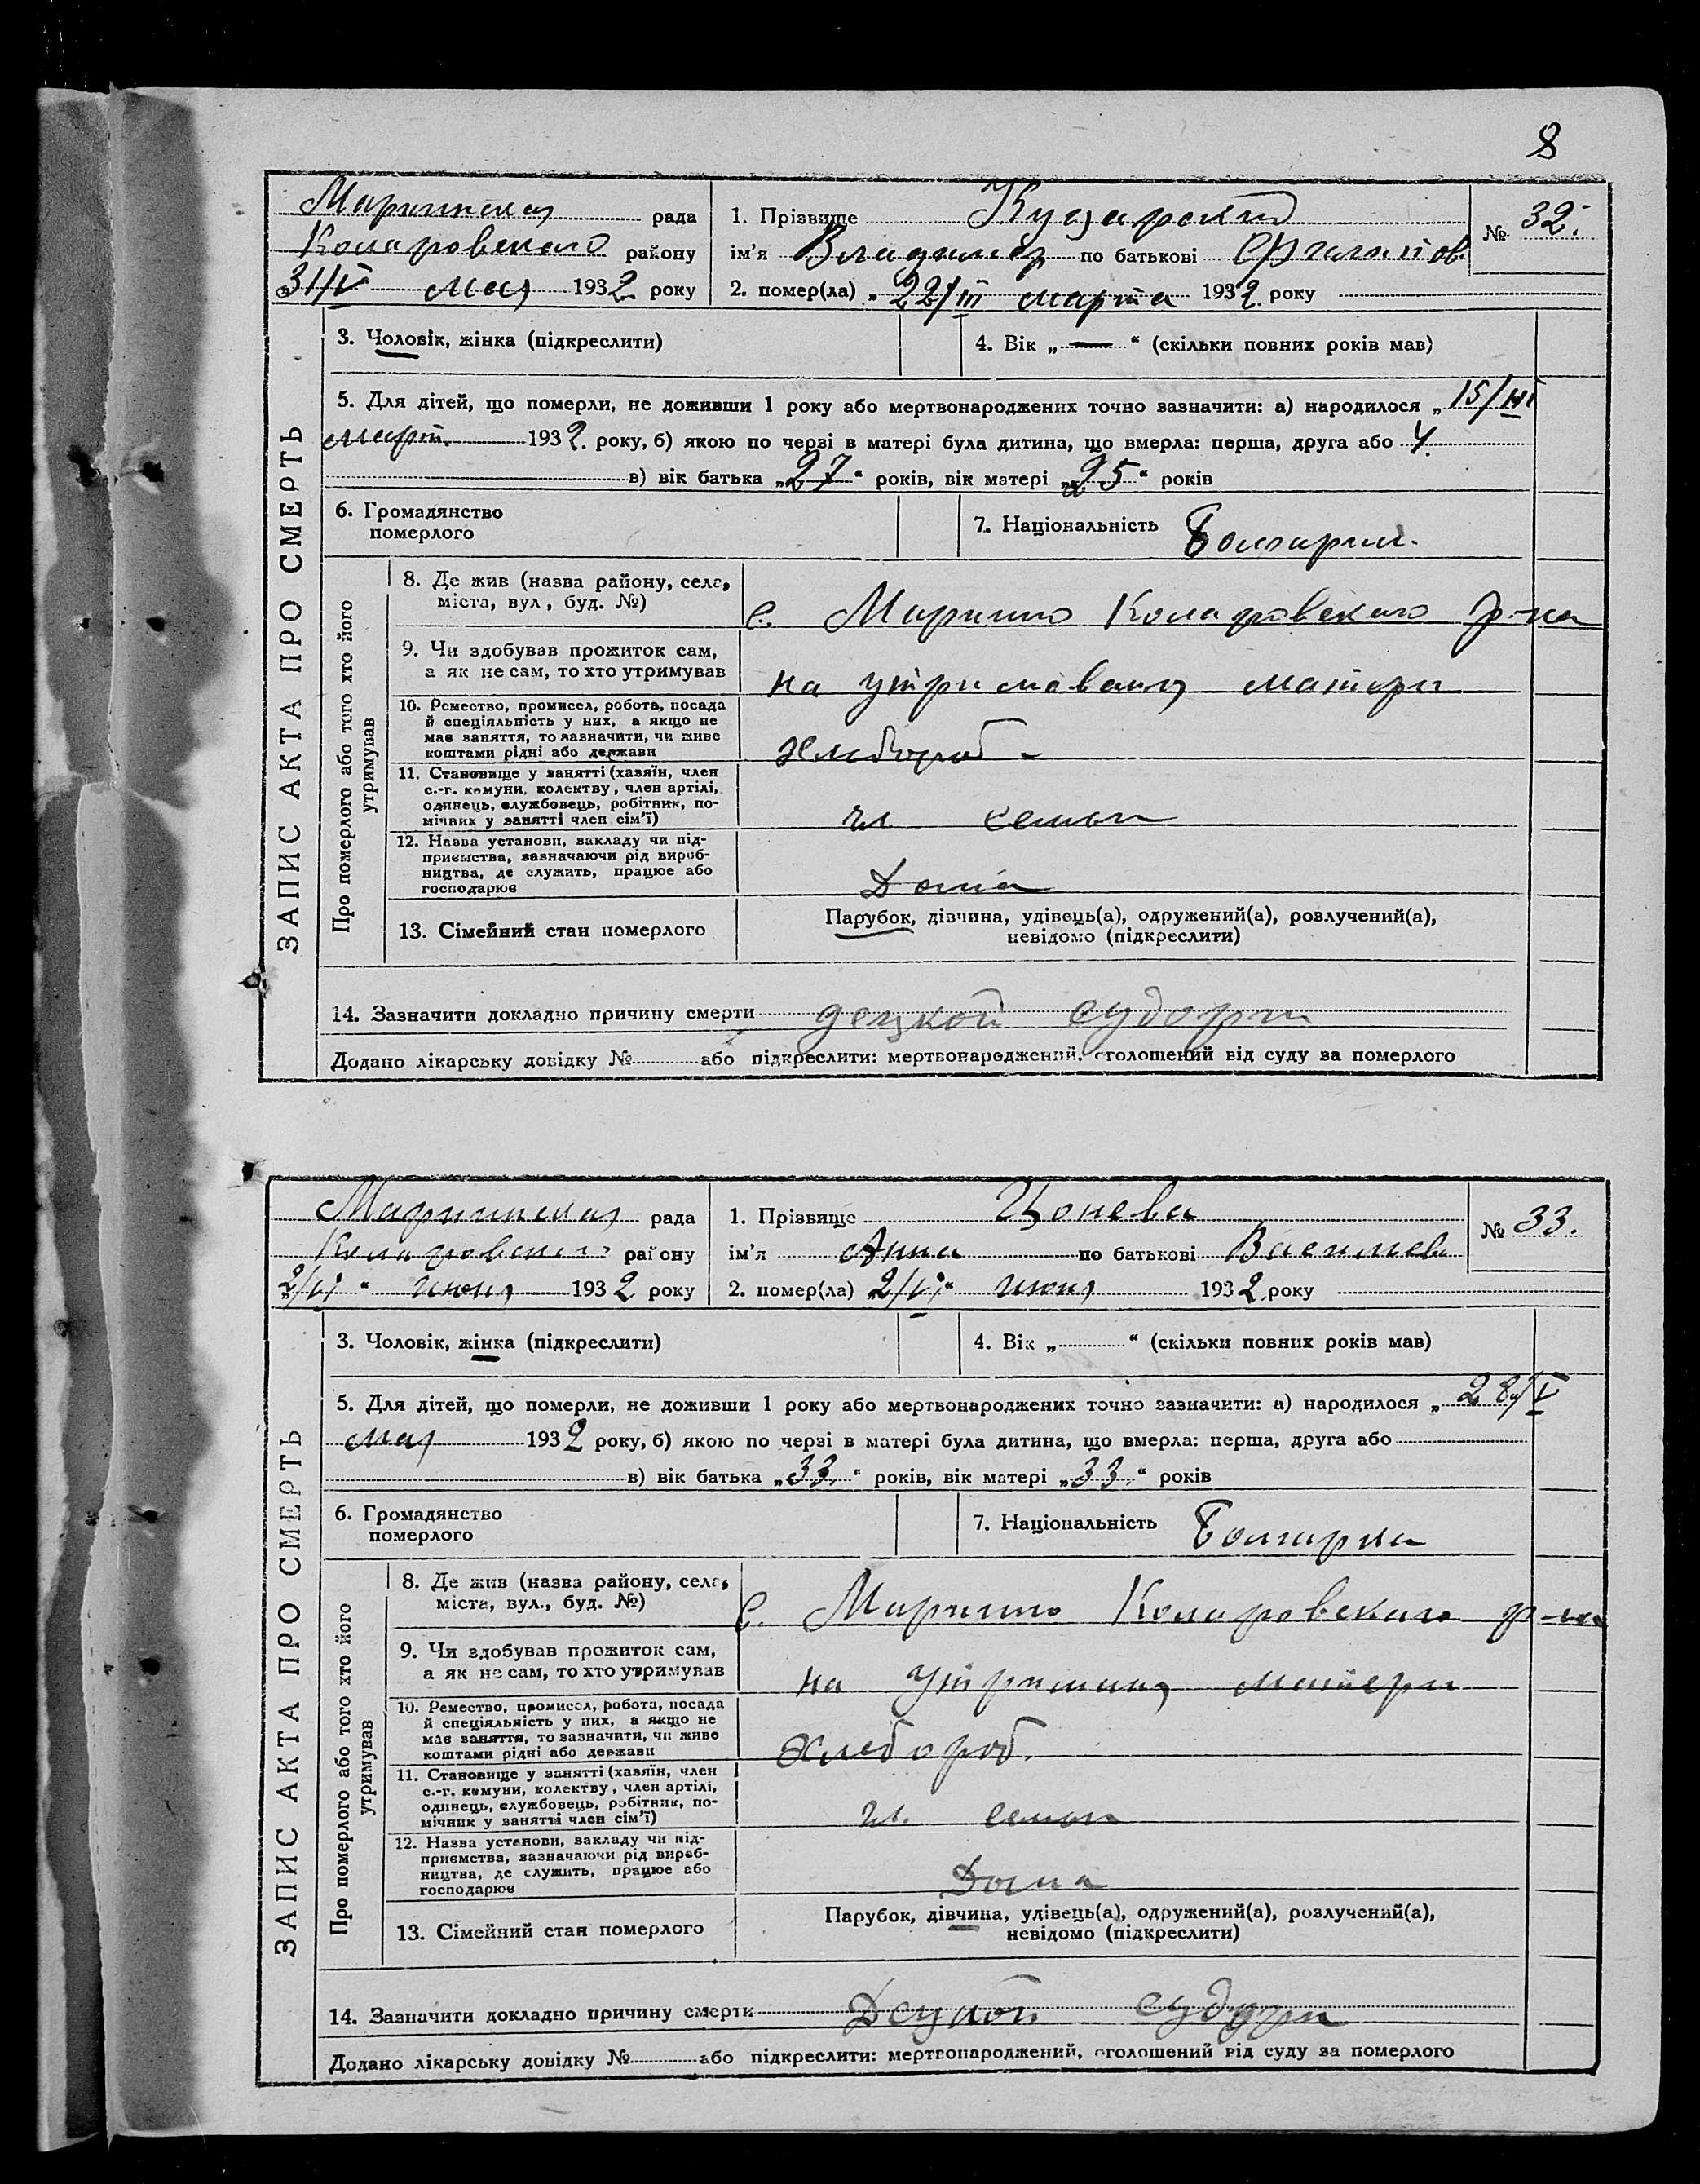 8
ЗАПИС АКТА ПРО СМЕРТЬ
Маринская рада
Коларовского району
31/V мая 1932 року
1. Прізвище Куцарский
ім'я Владимер по батькові Филипов
2. помер(ла) „22/III марта 1932 року
№ 32.
3. Чоловік, жінка (підкреслити)
4. Вік „—“ (скільки повних років мав)
5. Для дітей, що померли, не доживши 1 року або мертвонароджених точно зазначити: а) народилося „15/III
март. 1932. року, б) якою по черзі в матері була дитина, що вмерла: перша, друга або 4.
в) вік батька „27“ років, вік матері „25“ років
6. Громадянство
померлого
7. Національність
Про померлого або того хто його
утримував
8. Де жив (назва району, села,
міста, вул, буд. №)
с. Марино Коларовского р-на
9. Чи здобував прожиток сам,
а як не сам, то хто утримував
на матери
10. Ремество, промисел, робота, посада
й спеціяльність у них, а якщо не
має заняття, то зазначити, чи живе
коштами рідні або держави
хлебороб
11. Становище у занятті (хазяїн, член
с.-г. комуни, колектву, член артілі,
одинець, службовець, робітник, по-
мічник у занятті член сім'ї)
чл семьи
12. Назва установи, закладу чи під-
приємства, зазначаючи рід вироб-
ництва, де служить, працює або
господарює
Дома
13. Сімейний стан померлого
Парубок, дівчина, удівець(а), одружений(а), розлучений(а),
невідомо (підкреслити)
14. Зазначити докладно причину смерти децкой судорги
Додано лікарську довідку № або підкреслити: мертвонароджений, оголошений від суду за померлого
ЗАПИС АКТА ПРО СМЕРТЬ
Маринская рада
Коларовского району
„2/VI“ июня 1932 року
1. Прізвище Цонева
ім'я Анна по батькові Васильев
2. помер(ла) „2/VI“ июня 1932 року
№ 33.
3. Чоловік, жінка (підкреслити)
4. Вік „ “ (скільки повних років мав)
5. Для дітей, що померли, не доживши 1 року або мертвонароджених точно зазначити: а) народилося „28/V
мая 1932 року, б) якою по черзі в матері була дитина, що вмерла: перша, друга або
в) вік батька „33.“ років, вік матері „33.“ років
6. Громадянство
померлого
7. Національність Болгарка
Про померлого або того хто його
утримував
8. Де жив (назва району, села,
міста, вул., буд. №)
с. Марино Коларовского р-на
9. Чи здобував прожиток сам,
а як не сам, то хто утримував
на матери
10. Ремество, промисел, робота, посада
й спеціяльність у них, а якщо не
має заняття, то зазначити, чи живе
коштами рідні або держави
хлебороб.
11. Становище у занятті (хазяїн, член
с.-г. комуни, колектву, член артілі,
одинець, службовець, робітник, по-
мічник у занятті член сім'ї)
чл. семьи
12. Назва установи, закладу чи під-
приємства, зазначаючи рід вироб-
ництва, де служить, працює або
господарює
Дома
13. Сімейний стан померлого
Парубок, дівчина, удівець(а), одружений(а), розлучений(а),
невідомо (підкреслити)
14. Зазначити докладно причину смерти Децкой судорги
Додано лікарську довідку № або підкреслити: мертвонароджений, оголошений від суду за померлого